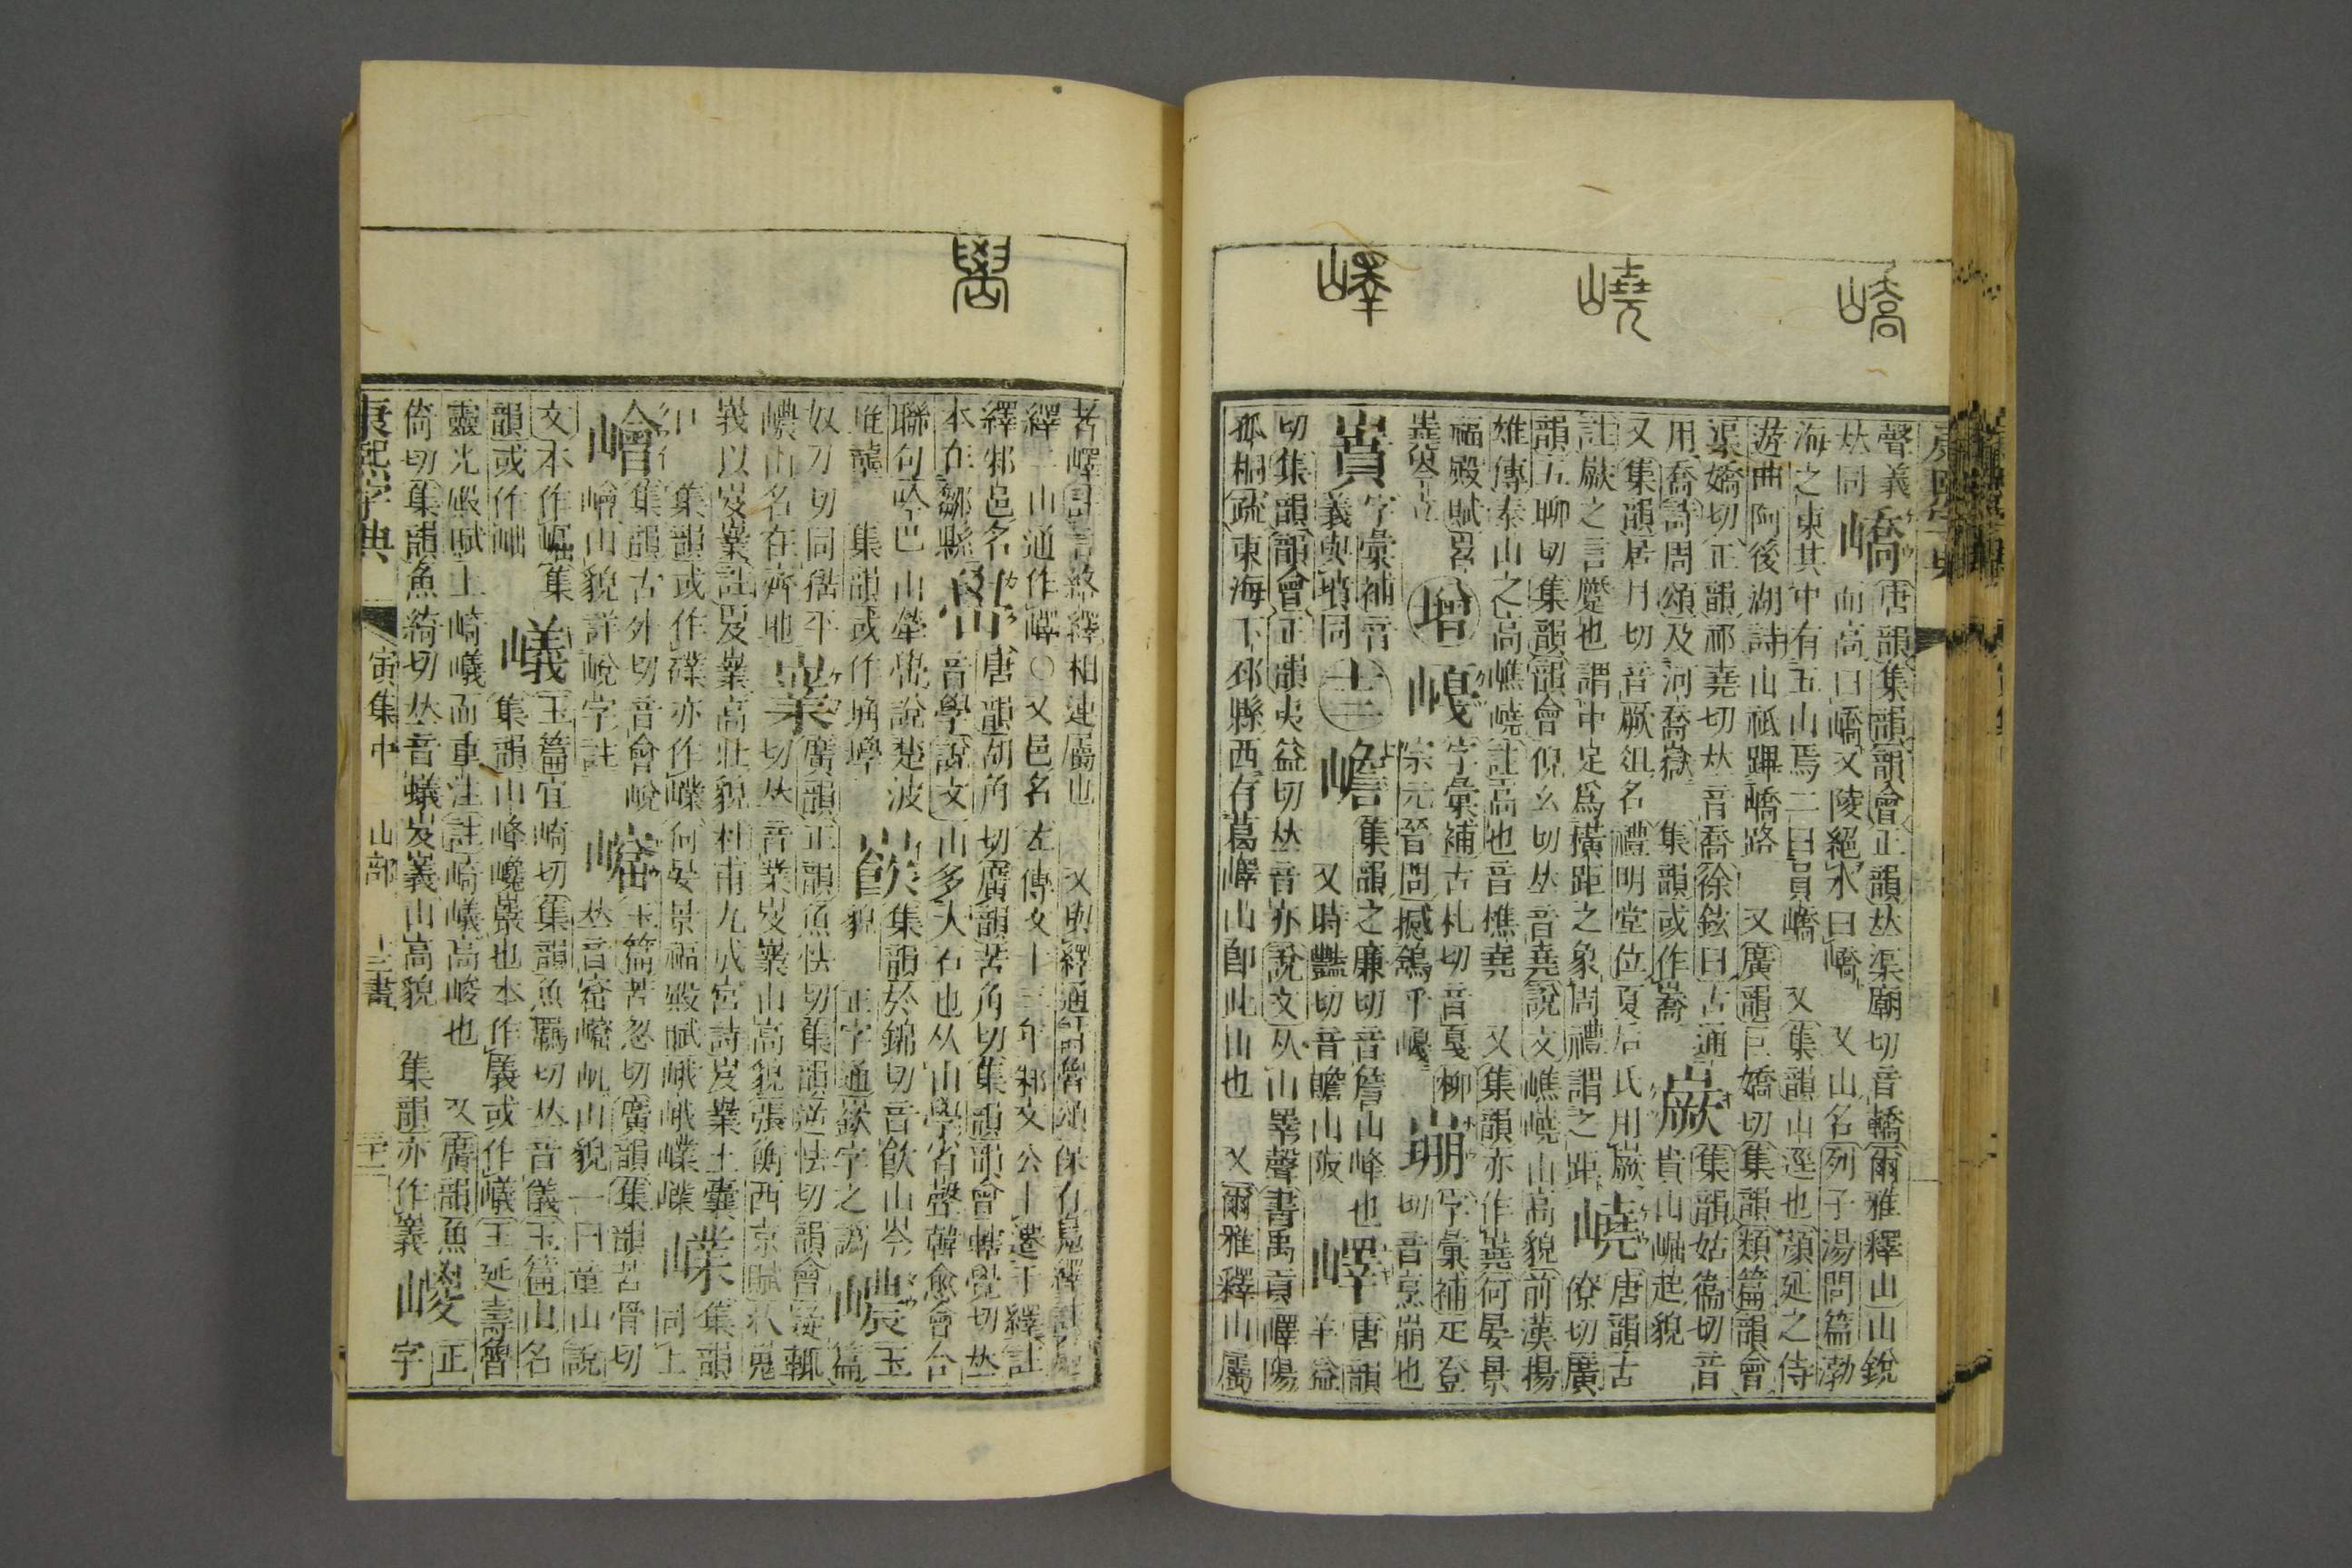 嶠
嶢
嶧
聲義
𠀤同
嶠
唐韻集韻韻會正韻𠀤渠廟切音轎爾雅釋山山銳
而高曰嶠又陵絕水曰嶠 又山名列子湯問篇渤
海之東其中有五山焉二曰員嶠 又集韻山逕也顏延之侍
遊曲阿後湖詩山祇蹕嶠路 又廣韻巨嬌切集韻類篇韻會
渠嬌切正韻祁堯切𠀤音喬徐鉉曰古通
用喬詩周頌及河喬嶽 集韻或作嶣
嶥
集韻姑衞切音
貴山崛起貌
又集韻居月切音厥俎名禮明堂位夏后氏用嶥
註嶥之言蹷也謂中足爲橫距之象周禮謂之距
嶢
唐韻古
僚切廣
韻五聊切集韻韻會倪幺切𠀤音堯說文嶕嶢山高貌前漢揚
雄傳泰山之高嶕嶢註高也音樵堯 又集韻亦作嶤何晏景
福殿賦
增
嶱
字彙補古札切音戛柳
宗元晉問
嶏
字彙補疋登
切音烹崩也
嶎
字彙補音
義與墳同
十三
嶦
集韻之廉切音詹山峰也
又時豔切音贍山阪
嶧
唐韻
羊益
切集韻韻會正韻夷益切𠀤音亦說文从山睪聲書禹貢嶧陽
孤桐疏東海下邳縣西有葛嶧山卽此山也 又爾雅釋山屬
嶨
者嶧註言絡繹相連屬也
繹二山通作嶧○又邑名左傳文十三年邾文公卜遷于繹註
繹邾邑名
本在鄒縣
嶨
唐韻胡角切廣韻苦角切集韻韻會轄覺切𠀤
音學說文山多大石也从山學省聲韓愈會合
聯句吟巴山犖嶨說楚波
堆壟 集韻或作埆㙾
集韻於錦切音飮山岑
貌 正字通嶔字之譌
㠢
玉
篇
奴刀切同猱平
㠢山名在齊地
嶪
廣韻正韻魚怯切集韻逆怯切韻會疑輒
切𠀤音業岌嶪山高貌張衡西京賦狀嵬
峩以岌嶪註岌嶪高壯貌杜甫九成宮詩岌嶪土囊
口 集韻或作𥗼亦作㠂何晏景福殿賦峨峨嶫嶫
嶫
集韻
同上
嶒
集韻古外切音會嶒
嶒山貌詳㟋字註
𡻙
玉篇苦忽切廣韻集韻苦骨切
𠀤音窟㠁㞦山貌一曰童山說
文本作崛集
韻或作㟮
㠖
玉篇宜崎切集韻魚羈切𠀤音儀玉篇山名
集韻山峰巉巖也本作㕒或作㠖王延壽魯
靈光殿賦上崎㠖而重注註崎㠖高峻也 又廣韻魚
倚切集韻魚綺切𠀤音螘岌㠖山高貌 集韻亦作㠖
㟅
正
字
康熙字典 寅集中 山部 十三畫